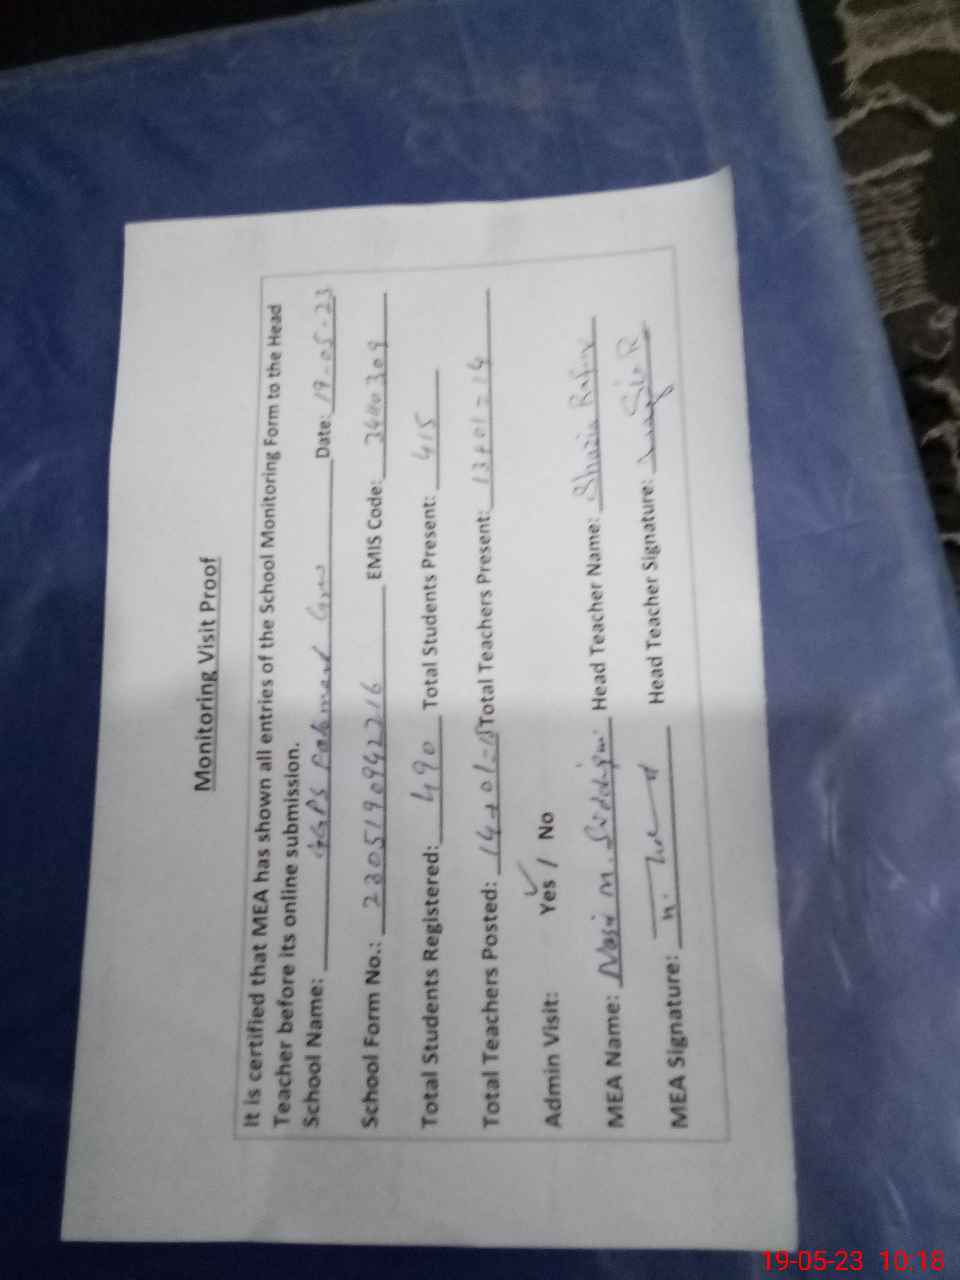 Monitoring Visit Proof
It is certified that MEA has shown all entries of the School Monitoring Form to the Head
Teacher before its online submission.
School Name: GGPS Date: 19-05-23
School Form No.: EMIS Code:
Total Students Registered: 490 Total Students Present: 415
Total Teachers Posted: 14+01=15 Total Teachers Present: 13+01=14
Admin Visit: Yes ✓ / No
MEA Name: M. Siddiqui Head Teacher Name: Shazia
MEA Signature: Head Teacher Signature:
19-05-23 10:18